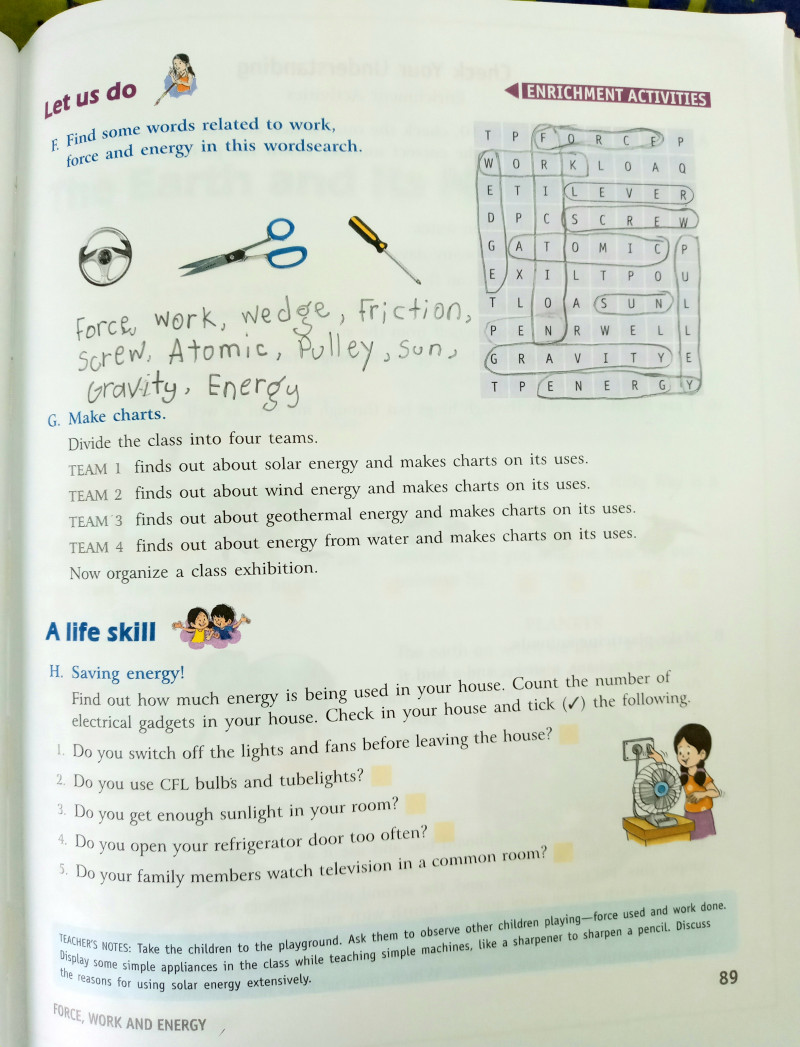 Let us do
ENRICHMENT ACTIVITIES
F. Find some words related to work,
force and energy in this wordsearch.
T P F O R C E P
W O R K L O A Q
E T I L E V E R
D P C S C R E W
G A T O M I C P
E X I L T P O U
T L O A S U N L
P E N R W E L L
G R A V I T Y E
T P E N E R G Y
Force, work, wedge, Friction,
Screw, Atomic, Pulley, sun,
Gravity, Energy
G. Make charts.
Divide the class into four teams.
TEAM 1 finds out about solar energy and makes charts on its uses.
TEAM 2 finds out about wind energy and makes charts on its uses.
TEAM 3 finds out about geothermal energy and makes charts on its uses.
TEAM 4 finds out about energy from water and makes charts on its uses.
Now organize a class exhibition.
A life skill
H. Saving energy!
Find out how much energy is being used in your house. Count the number of
electrical gadgets in your house. Check in your house and tick (✓) the following.
1. Do you switch off the lights and fans before leaving the house?
2. Do you use CFL bulbs and tubelights?
3. Do you get enough sunlight in your room?
4. Do you open your refrigerator door too often?
5. Do your family members watch television in a common room?
TEACHER'S NOTES: Take the children to the playground. Ask them to observe other children playing—force used and work done.
Display some simple appliances in the class while teaching simple machines, like a sharpener to sharpen a pencil. Discuss
the reasons for using solar energy extensively.
89
FORCE, WORK AND ENERGY